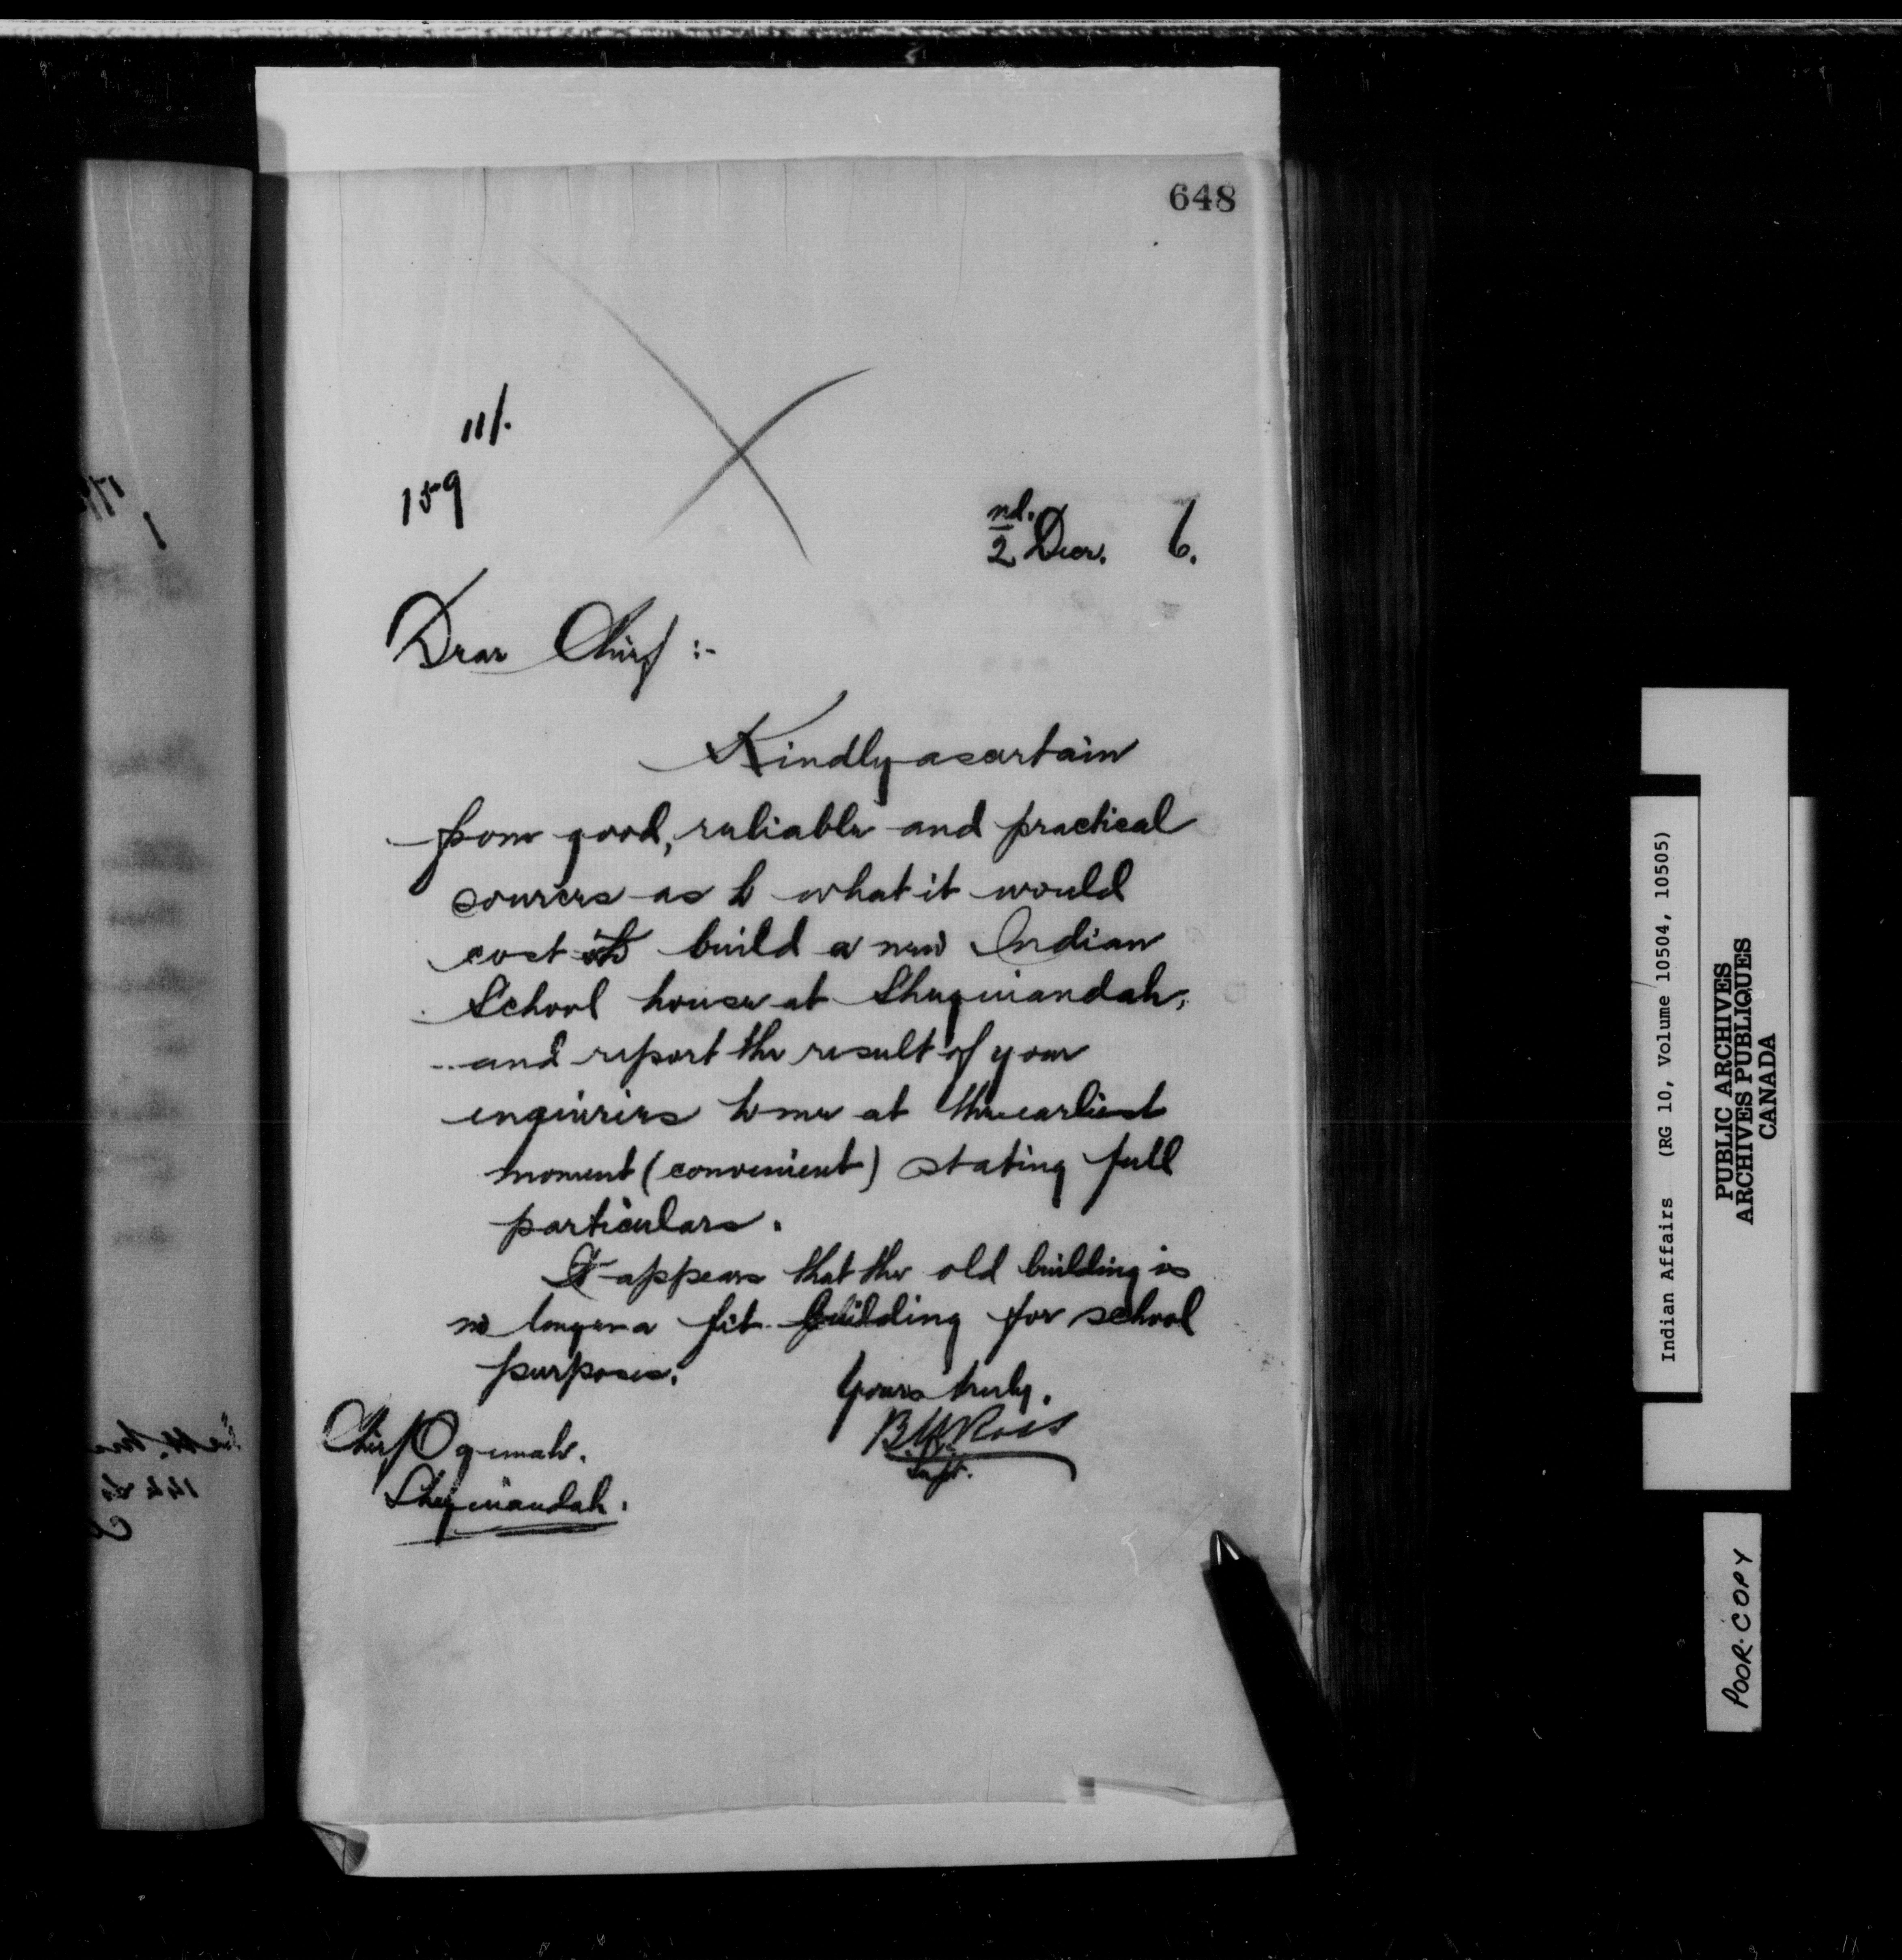 648
11/.
159
2nd. Decr. 6.
Dear Chief :-
Kindly ascertain
from good, reliable and practical
sources as to what it would
cost to build a new Indian
School house at Sheguiandah,
and report the result of your
enquiries to me at the earliest
moment (convenient) stating full
particulars.
It appears that the old building is
no longer a fit building for school
purposes.
Yours truly.
B W Ross
Supt.
Chief Ogemah.
Sheguiandah.
Indian Affairs (RG 10, Volume 10504, 10505)
PUBLIC ARCHIVES
ARCHIVES PUBLIQUES
CANADA
POOR COPY